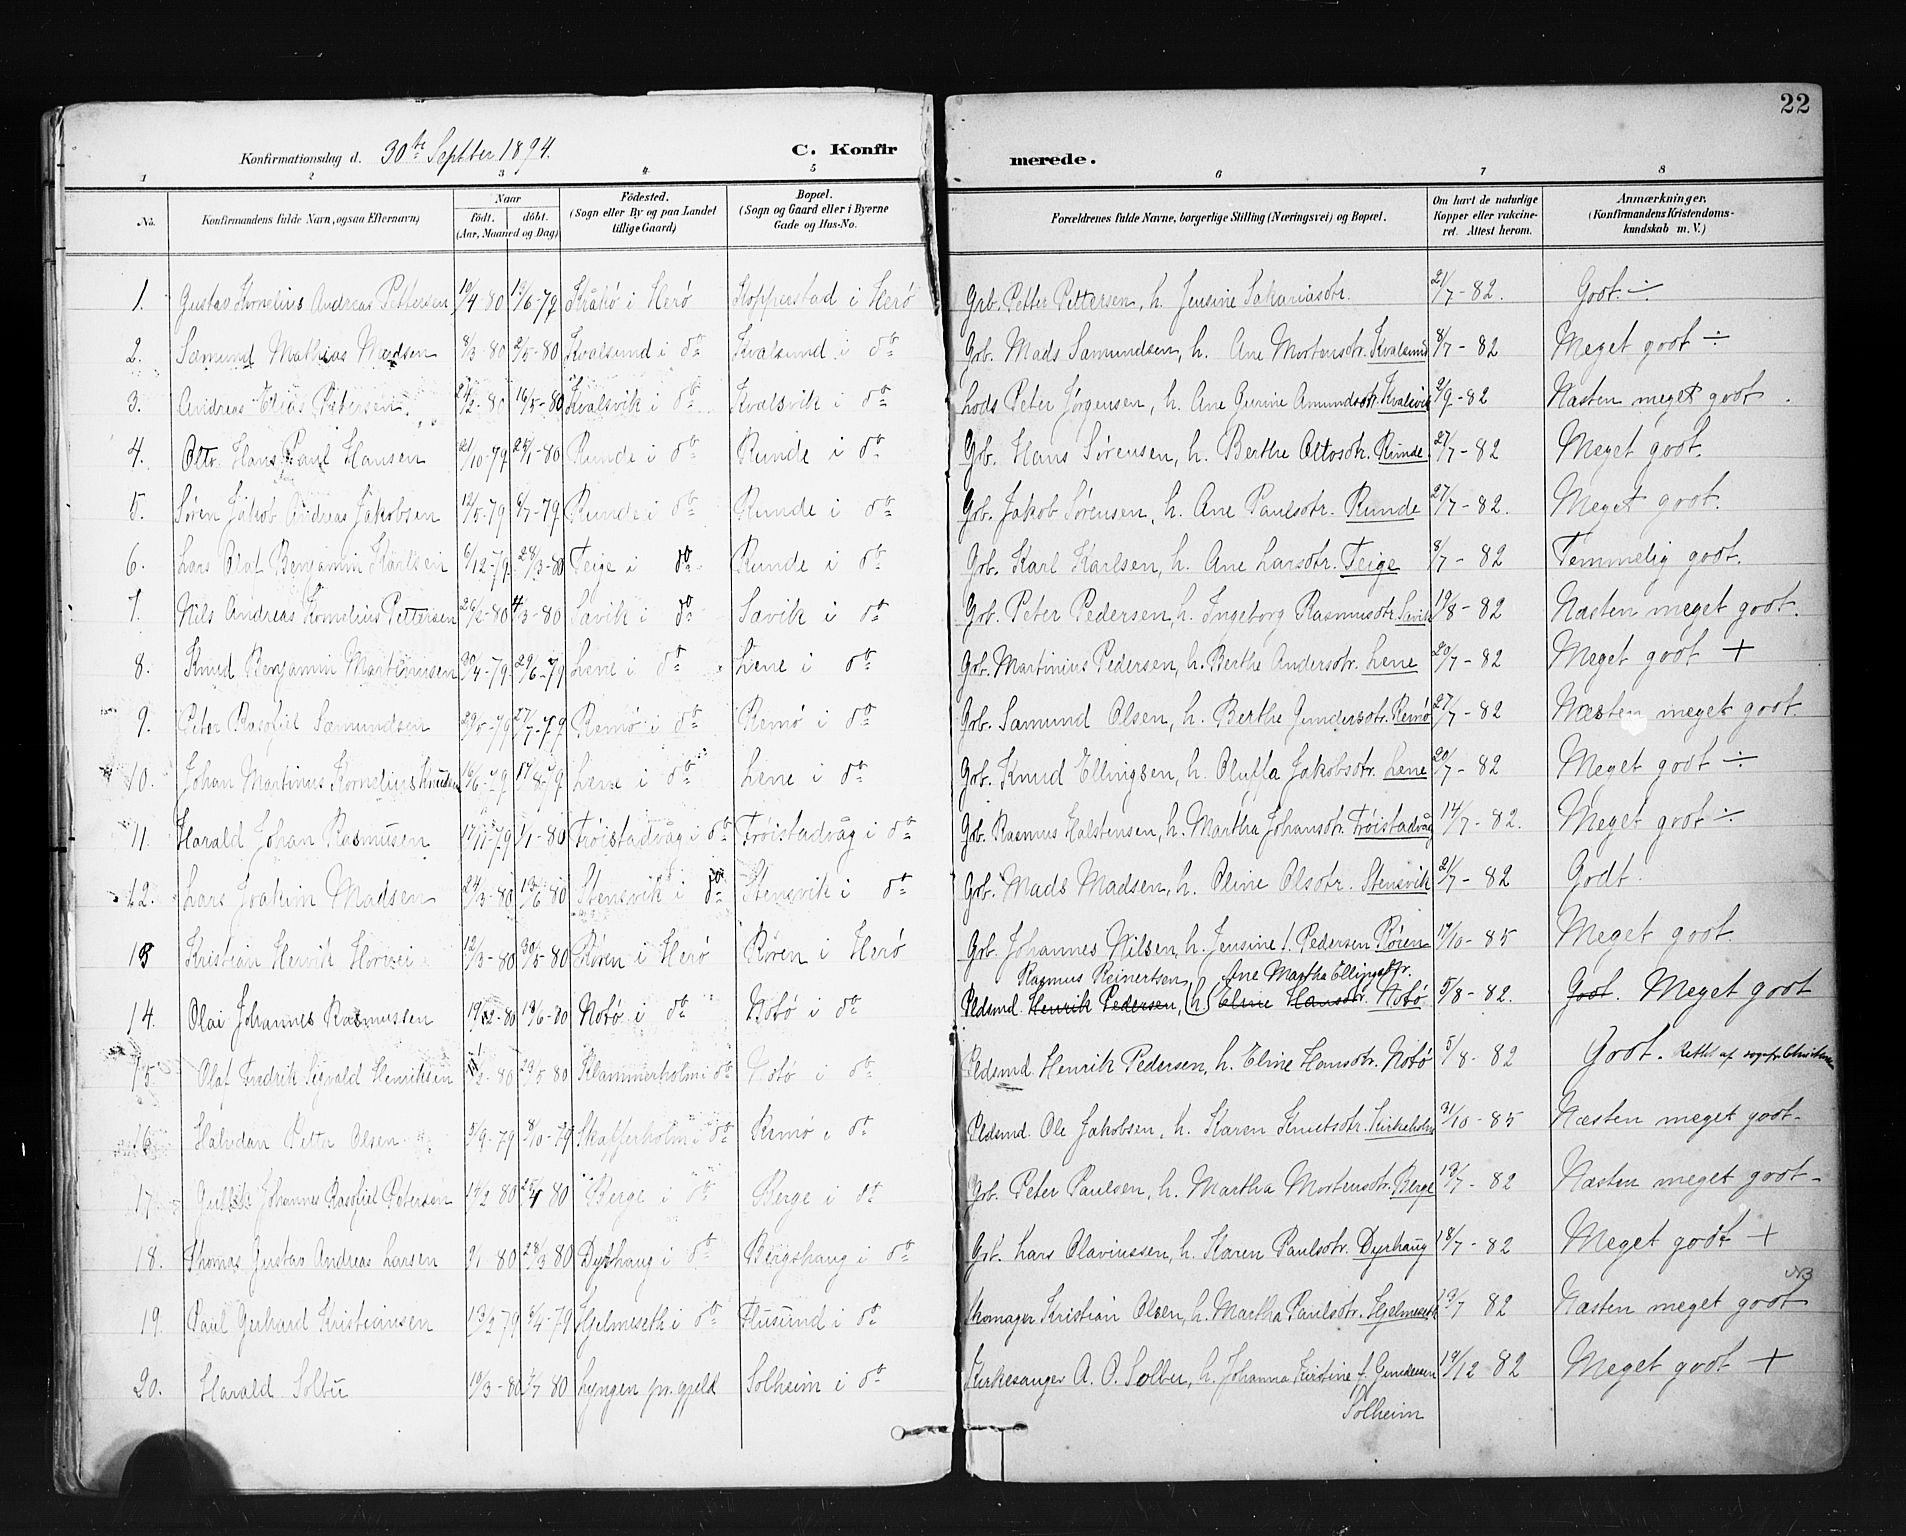 22
Konfirmationsdag d. 30te Septber 1894. C. Konfirmerede.
1 2 3 4 5 6 7 8
No. Konfirmandens fulde Navn, ogsaa Efternavn) Naar født. døbt. (Aar, Maaned og Dag) Fødested. (Sogn eller By og paa Landet tillige Gaard) Bopæl. (Sogn og Gaard eller i Byerne Gade og Hus-No. Forældrenes fulde Navne, borgerlige Stilling (Næringsvei) og Bopæl. Om havt de naturlige Kopper eller vakcineret. Attest herom. Anmærkninger, (Konfirmandens Kristendomskundskab m. V.)
1. Gustav Kornelius Andreas Pettersen Kråkø i Herø Kopperstad i Herø Grb. Petter Pettersen, h. Jensine Sakariasdtr. 21/7-82. Godt. ÷
2. Sæmund Mathias Madsen 8/3-80 2/5-80 Kvalsund i do Kvalsund i do Grb. Mads Sæmundsen, h. Ane Mortensdtr. Kvalsund 8/7-82 Meget godt ÷
3. Andreas Elias Petersen 24/2-80 16/5-80 Kvalsvik i do Kvalsvik i do Lods Peter Jørgensen, h. Ane Gurine Amundsdtr. Kvalsvik 2/9-82 Næsten meget godt.
4. Otto Hans Paul Hansen 21/10-79 25/1-80 Runde i do Runde i do Grb. Hans Sørensen, h. Berthe Ottosdtr. Runde 27/7-82 Meget godt.
5. Søren Jakob Andreas Jakobsen 12/5-79 6/7-79 Runde i do Runde i do Grb. Jakob Sørensen, h. Ane Paulsdtr. Runde 27/7-82. Meget godt.
6. Lars Olaf Benjamin Karlsen 6/12-79 28/3-80 Teige i do Runde i do Grb. Karl Karlsen, h. Ane Larsdtr. Teige 8/7-82 Temmelig godt.
7. Nils Andreas Kornelius Pettersen 26/2-80 4/3-80 Sævik i do Sævik i do Grb. Peter Pedersen, h. Ingeborg Rasmusdtr. Sævik 19/8-82 Næsten meget godt.
8. Knud Benjamin Martinusen 30/4-79 29/6-79 Lene i do Lene i do Grb. Martinius Pedersen, h. Berthe Andersdtr. Lene 20/7-82 Meget godt +
9. Peter Rasofiel Sæmundsen 29/5-79 27/7-79 Remø i do Remø i do Grb. Sæmund Olsen, h. Berthe Gundersdtr. Remø 27/7-82 Næsten meget godt.
10. Johan Martinus Kornelius Knudsen 16/6-79 17/8-79 Lene i do Lene i do Grb. Knud Ellingsen, h. Oluffa Jakobsdtr. Lene 20/7-82 Meget godt ÷
11. Harald Johan Rasmusen 17/11-79 1/1-80 Frøistadvåg i do Frøistadvåg i do Grb. Rasmus Halstensen, h. Martha Johansdtr. Frøistadvåg 14/7-82. Meget godt ÷
12. Lars Joakim Madsen 24/3-80 13/6-80 Stensvik i do Stensvik i do Grb. Mads Madsen, h. Oline Olsdtr. Stensvik 21/7-82 Godt.
13 Kristian Henrik 12/3-80 30/5-80 Røren i Herø Røren i Herø Grb. Johannes Nilsen, h. Jensine f. Pedersen Røren 17/10-85 Meget godt.
Rasmus Reinertsen Ane Martha Ellingsdtr.
14. Olai Johannes Rasmussen 19/2-80 13/6-80 Notø i do Notø i do Pldsmd. Henrik Pedersen, (h) Eline Hansdtr. Notø 5/8-82. Godt. Meget godt
15. Olaf Fredrik Sigvald Henriksen Klammerholm i do Notø i do Pldsmd. Henrik Pedersen, h. Eline Hansdtr. Notø 5/8-82 Godt. Rettet af
16. Halvdan Petter Olsen 5/9-79 8/10-79 Skafferholm i do Remø i do Pldsmd. Ole Jakobsen, h. Karen Knutsdtr. Kirkeholm 31/10-85 Næsten meget godt
17. Johannes Rasofiel Petersen 14/2 80 25/4 80 Berge i do Berge i do Grb. Peter Paulsen, h. Martha Mortensdtr. Berge 19/7-82 Næsten meget godt
18. Thomas Gustav Andreas Larsen 9/1 80 28/3 80 Dyrhaug i do Bergshaug i do Grb. Lars Olaviussen, h. Karen Paulsdtr. Dyrhaug 18/7-82 Meget godt +
NB
19. Paul Gerhard Kristiansen 13/2 79 Hjelmeseth i do Flusund i do Skomager Kristian Olsen, h. Martha Paulsdtr. Hjelmeseth 19/7 82 Næsten meget godt
20. Harald Solbu 19/3-80 4/7 80 Lyngen pr.gjeld Solheim i do Kirkesanger A. O. Solbu, h. Johanna Kirstine f. Gundersen 19/12 82 Meget godt +
Solheim